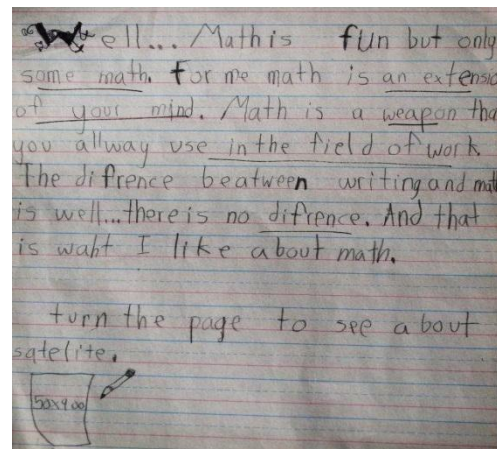 Well... Math is fun but only
some math. For me math is an extensio
of your mind. Math is a weapon tha
you allway use in the field of work.
The difrence beatween writing and mat
is well...there is no difrence. And that
is waht I like about math.
turn the page to see about
satelite.
50x400